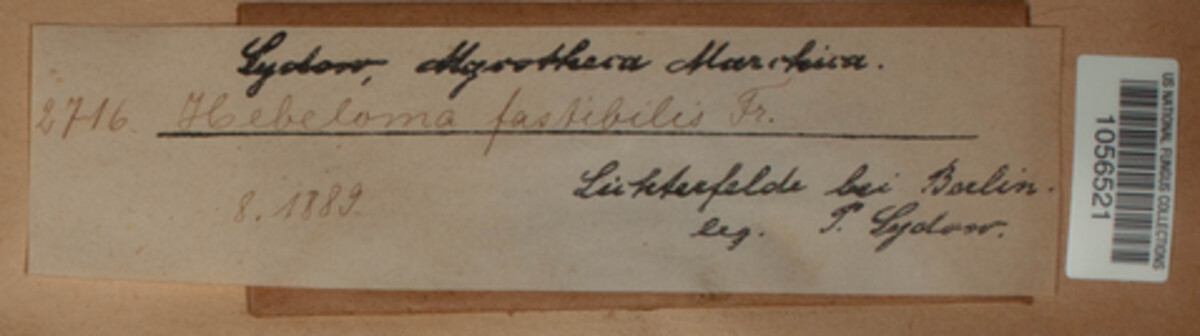 Sydow, Mycotheca Marchica.
2716. Hebeloma fastibilis Fr.
8. 1889.
Lichterfelde bei Berlin.
leg. P. Sydow.
US NATIONAL FUNGUS COLLECTIONS
1056521